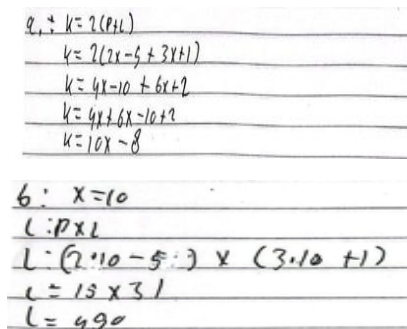 a, : k = 2(P+L)
k = 2(2x-5 + 3x+1)
k = 4x-10 + 6x+2
k = 4x+6x-10+2
k = 10x - 8
b: x=10
L : P x L
L : (2.10 - 5 ) x (3.10 +1)
L = 15 x 31
L = 490